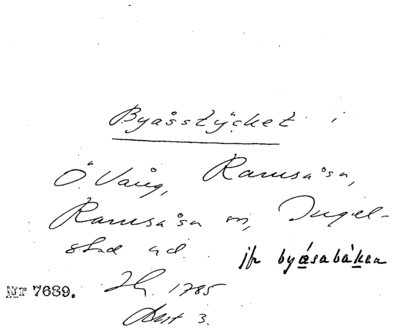 Byåsstycket i
Ö. Vång, Ramsåsa,
Ramsåsa sn, Ingel-
stad hd. jfr byåsabàkan
Nr 7689. LSA. 1785
Akt 3.